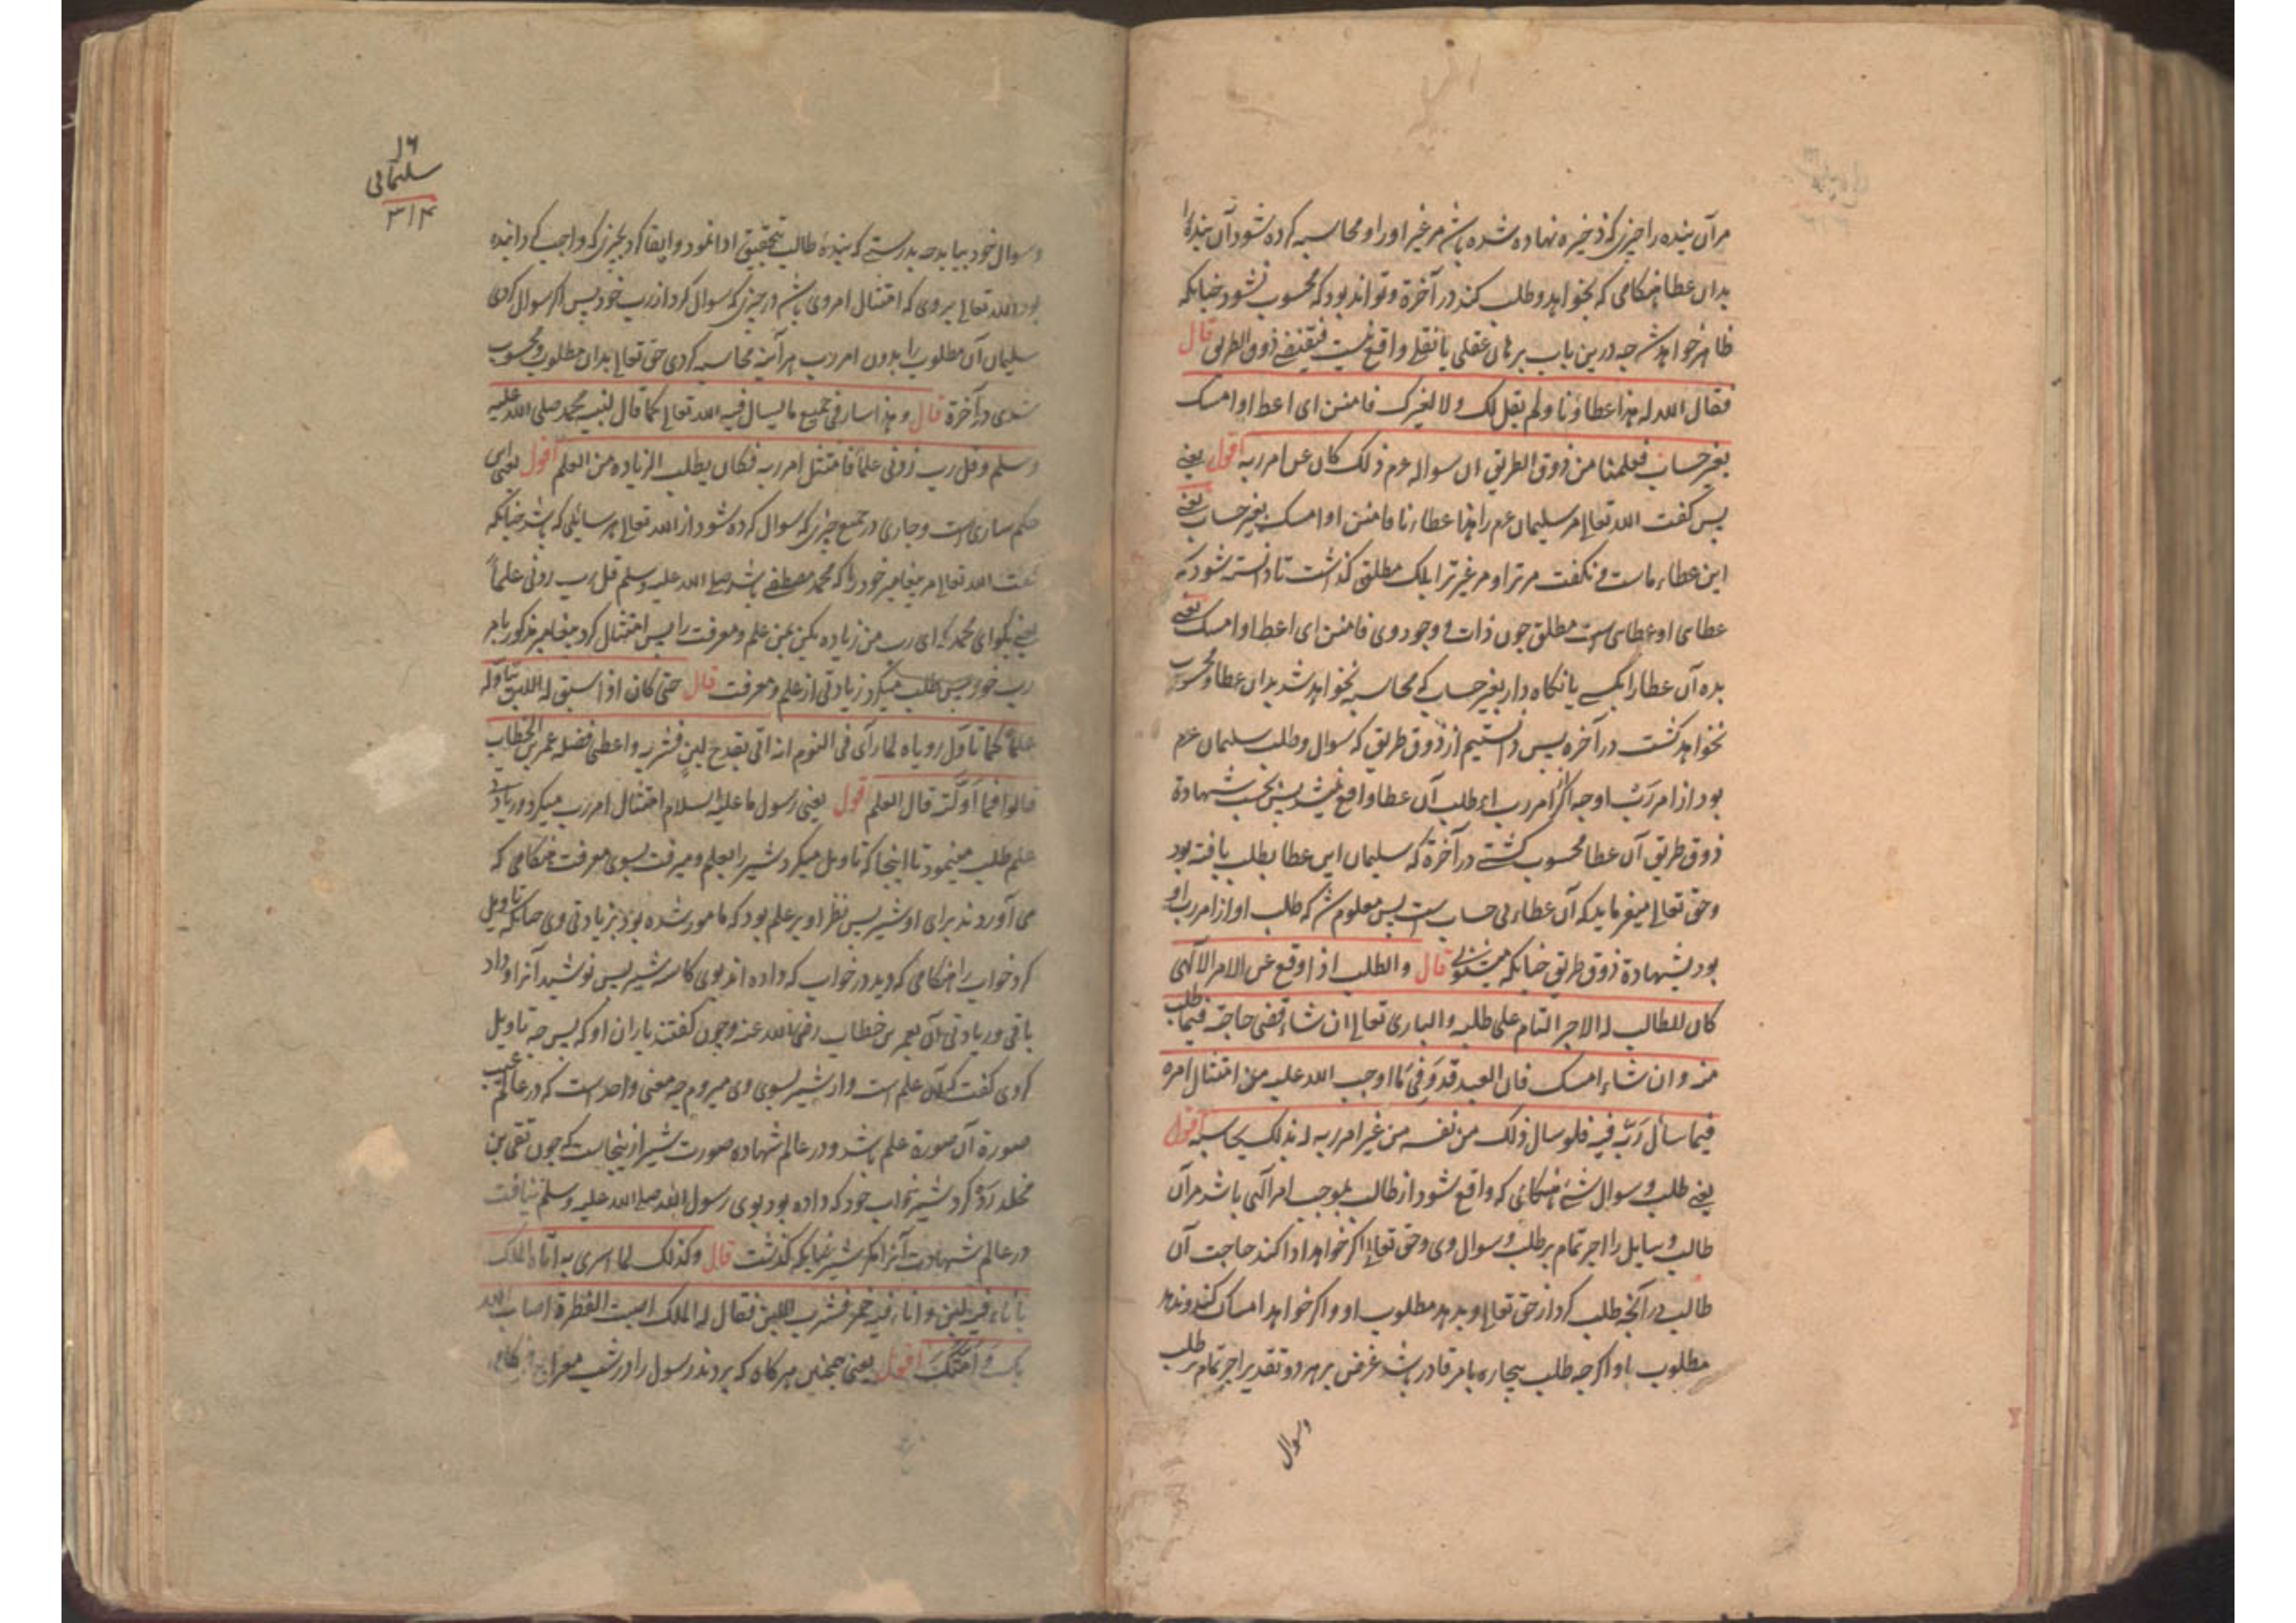 مرآن بنده را چیزی که ذخیره نهاده شده باشد مر غیر او را و محاسبه کرده شود آن بنده را
بدان عطا هنکامی که بخواهد و طلب کند در آخرة و تواند بود که محسوب نشود چنانکه
ظاهر خواهد شد چه درین باب برهان عقلی یا نقلی واقع نیست فیقتضی ذوق الطریق قال
فقال الله له هذا عطاؤنا ولم یقل لک ولا لغیرک فامنن ای اعط او امسک
بغیر حساب فعلمنا من ذوق الطریق ان سواله عم ذلک کان عن امر ربه اقول یعنی
پس کفت الله تعالی مر سلیمان عم را هذا عطاءنا فامنن او امسک بغیر حساب یعنی
این عطاء ماست و نکفت مر ترا و مر غیر ترا بلک مطلق کذاشت تا دانسته شود که
عطای او عطای است مطلق چون ذات و وجود وی فامنن ای اعط او امسک یعنی
بده آن عطا را بکسی یا نکاه دار بغیر حساب که محاسبه نخواهد شد بدان عطا و محسوب
نخواهد کشت در آخره پس دانستیم از ذوق طریق که سوال و طلب سلیمان عم
بود از امر رب او چه اکر امر رب ای طلب آن عطا واقع نمیشد پس بحسب شهادة
ذوق طریق آن عطا محسوب کشتی در آخرة که سلیمان این عطا بطلب یافته بود
و حق تعالی میفرماید که آن عطاء بی حساب است پس معلوم شد که طلب او از امر رب او
بود بشهادة ذوق طریق چنانکه میشنوی قال والطلب اذا وقع عن الامر الالهی
کان للطالب له الاجر التام علی طلبه والباری تعالی ان شاء قضی حاجته فیما طلب
منه وان شاء امسک فان العبد قد وفی ما اوجب الله علیه من امتثال امره
فیما سأل ربه فیه فلو سال ذلک من نفسه من غیر امر ربه له بذلک یحاسبه اقول
یعنی طلب و سوال شئ هنکامی که واقع شود از طالب بموجب امر الهی باشد مر آن
طالب و سایل را اجر تمام بر طلب و سوال وی و حق تعالی اکر خواهد ادا کند حاجت آن
طالب در آنچه طلب کرد از حق تعالی و بدهد مطلوب او و اکر خواهد امساک کند و ندهد
مطلوب باو اکرچه طلب بیچاره بامر قادر باشد غرض بر هر دو تقدیر اجر تمام بر طلب
وسوال
۱۶
سلیمانی
۳۱۴
وسوال خود بیابد چه بدرستی که بنده طالب بتحقیق ادا نمود و ایفا کرد بچیزی که واجب کردانیده
بود الله تعالی بروی که امتثال امر وی باشد در چیزی که سوال کرد از رب خود پس اکر سوال کردی
سلیمان آن مطلوب را بدون امر رب هر آینه محاسبه کردی حق تعالی بدان مطلوب و محسوب
شدی در آخرة قال وهذا سار فی جمیع ما یسال فیه الله تعالی کما قال لنبیه محمد صلی الله علیه
وسلم وقل رب زدنی علما فامتثل امر ربه فکان یطلب الزیاده من العلم اقول یعنی این
حکم ساری است و جاری در جمیع چیزی که سوال کرده شود از الله تعالی هر سائلی که باشد چنانکه
کفت الله تعالی مر پیغامبر خود را که محمد مصطفی باشد صلی الله علیه وسلم قل رب زدنی علماً
یعنی بکو ای محمد که ای رب من زیاده بکن بمن علم و معرفت را پس امتثال کرد پیغامبر مذکور بامر
رب خود پس طلب میکرد زیادتی از علم و معرفت قال حتی کان اذا سیق له اللبن یتاوله
علماً کما تأول رویاه لما رآی فی النوم انه اتی بقدح لبن فشربه واعطی فضله عمر بن الخطاب
قالوا فما اوّلته قال العلم اقول یعنی رسول ما علیه السلام امتثال امر رب میکرد و زیادتی
علم طلب مینمود تا اینجا که تاویل میکرد شیر را بعلم و میرفت بسوی معرفت هنکامی که
می آوردند برای او شیر پس نظر او بر علم بود که مامور شده بود بزیادتی وی چنانکه تاویل
کرد خواب را هنکامی که دید در خواب که داده اند بوی کاسه شیر پس نوشید آنرا و داد
باقی و زیادتی آن بعمر بن خطاب رضی الله عنه و چون کفتند یاران او که پس چه تاویل
کردی کفت که آن علم است و از شیر بسوی وی میروم چه معنی واحد است که در عالم غیب
صورة آن صورة علم باشد و در عالم شهاده صورت شیر از ینجاست که چون تقی بن
مخلد ردّ کرد شیر خواب خود که داده بود بوی رسول الله صلی الله علیه وسلم نیافت
در عالم شهادت آنرا مکر شیر چنانکه کذشت قال وکذلک لما اسری به اتاه الملک
باناء فیه لبن واناء فیه خمر فشرب اللبن فقال له الملک اصبت الفطرة اصاب الله
بک امتک اقول یعنی همچنین هرکاه که بردند رسول را در شب معراج